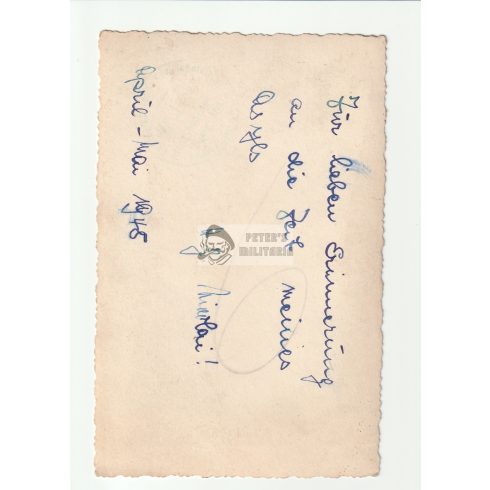 Zur lieben Erinnerung
an die Zeit meines
Asyls
Nikolai!
April - Mai 1945
PETER'S
MILITARIA